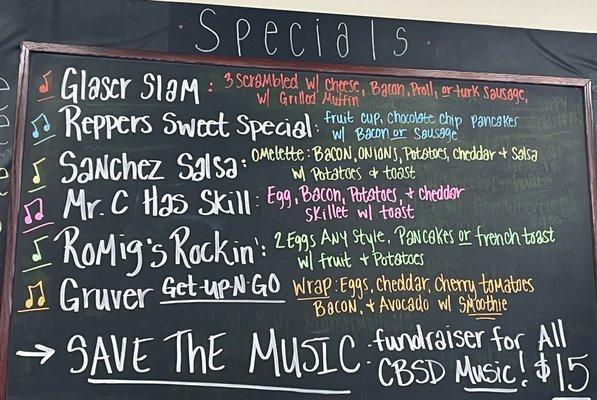 Specials
Glaser Slam: 3 scrambled w/ cheese, Bacon, Proll, or turk sausage,
w/ Grilled Muffin
Reppers Sweet Special: fruit cup, chocolate chip pancakes
w/ Bacon or Sausage
Sanchez Salsa: Omelette: Bacon, onions, Potatoes, cheddar + salsa
w/ Potatoes + toast
Mr. C Has Skill: Egg, Bacon, Potatoes, + cheddar
skillet w/ toast
Romig's Rockin': 2 Eggs Any Style, Pancakes or french toast
w/ fruit + Potatoes
Gruver Get-up-N-Go Wrap: Eggs, cheddar, cherry tomatoes
Bacon, + Avocado w/ Smoothie
→ SAVE THE MUSIC · fundraiser for All
CBSD Music! $15